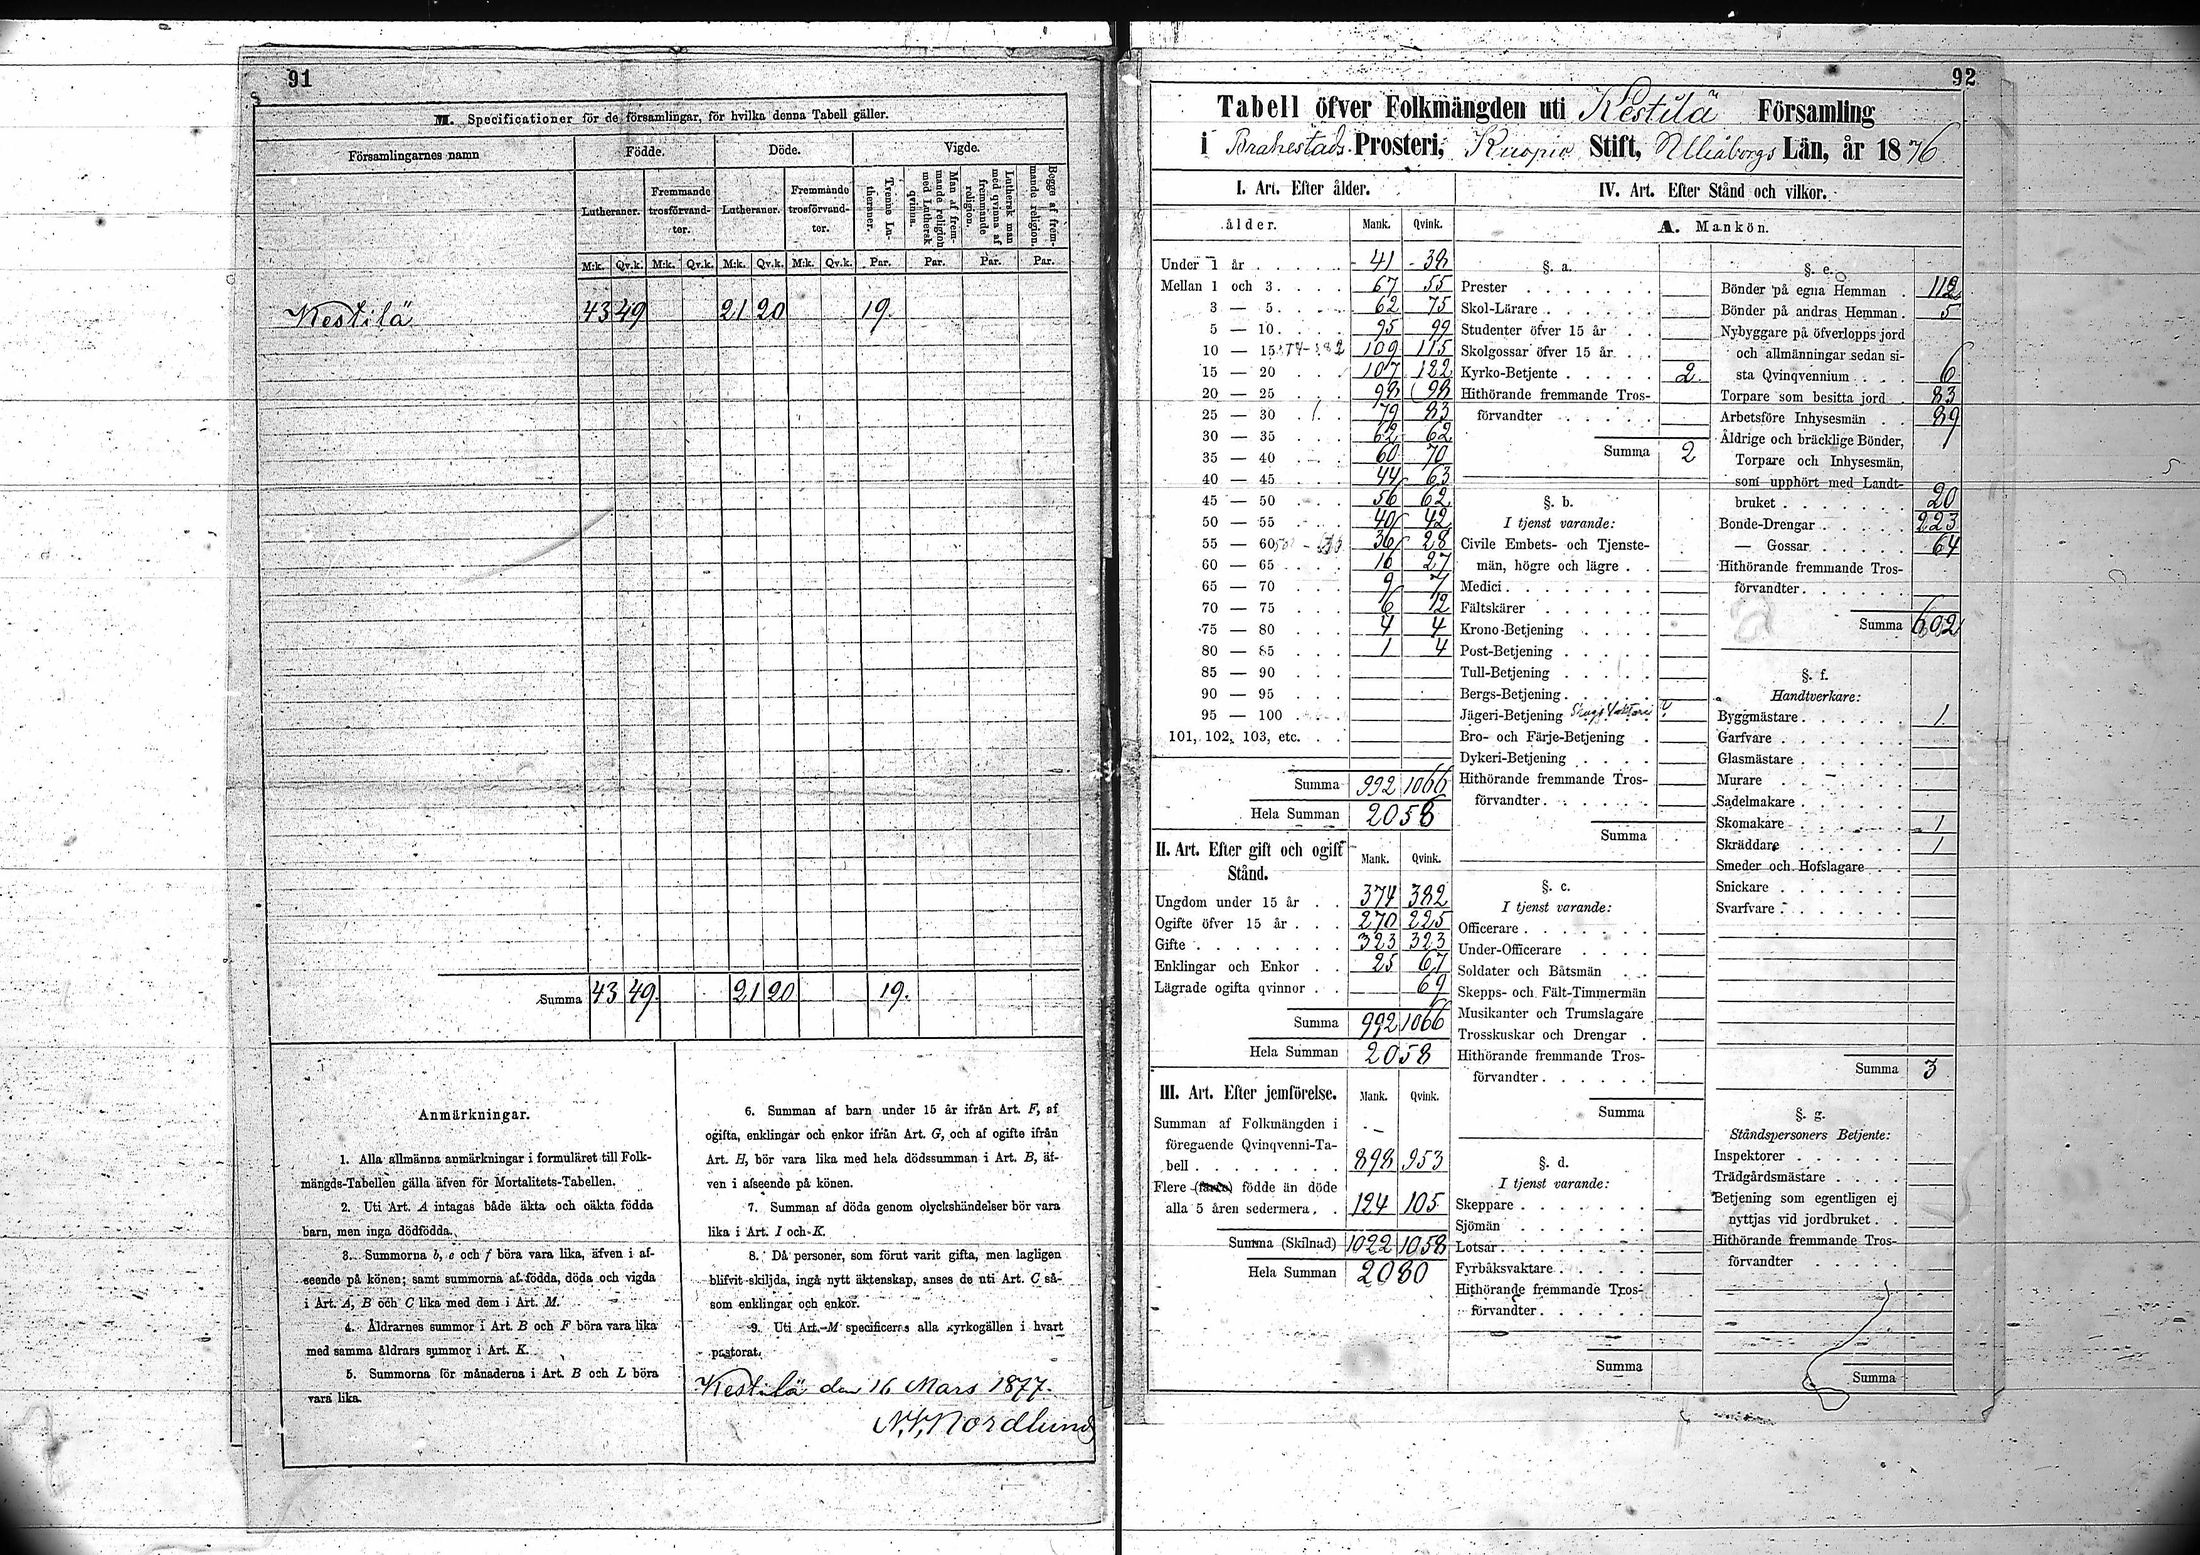 91
M. Specificationer för de församlingar, för hvilka denna Tabell gäller.
Församlingarnes namn
Födde.
Döde.
Vigde.
Lutheraner.
Fremmande trosförvandter.
Lutheraner.
Fremmande trosförvandter.
Tvenne Lutheraner.
Man af fremmande religion med Luthersk qvinna.
Luthersk man med qvinna af fremmande religion.
Begge af fremmande religion.
M:k. Qv.k. M:k. Qv.k. M:k. Qv.k. M:k. Qv.k. Par. Par. Par. Par.
Kestilä 43 49 21 20 19.
Summa 43 49. 21 20 19.
Anmärkningar.
1. Alla allmänna anmärkningar i formuläret till Folk-
mängds-Tabellen gälla äfven för Mortalitets-Tabellen.
2. Uti Art. A intagas både äkta och oäkta födda
barn, men inga dödfödda.
3. Summorna b, e och f böra vara lika, äfven i af-
seende på könen; samt summorna af födda, döda och vigda
i Art. A, B och C lika med dem i Art. M.
4. Åldrarnes summor i Art. B och F böra vara lika
med samma åldrars summor i Art. K.
5. Summorna för månaderna i Art. B och L böra
vara lika.
6. Summan af barn under 15 år ifrån Art. F, af
ogifta, enklingar och enkor ifrån Art. G, och af ogifte ifrån
Art. H, bör vara lika med hela dödssumman i Art. B, äf-
ven i afseende på könen.
7. Summan af döda genom olyckshändelser bör vara
lika i Art. I och K.
8. Då personer, som förut varit gifta, men lagligen
blifvit skiljda, ingå nytt äktenskap, anses de uti Art. C så-
som enklingar och enkor.
9. Uti Art. M specificeras alla kyrkogällen i hvart
pastorat.
Kestilä den 16 Mars 1877.
Nordlund
92
Tabell öfver Folkmängden uti Kestilä Församling
i Brahestads Prosteri, Kuopio Stift, Uleåborgs Län, år 1876
I. Art. Efter ålder.
ålder. Mank. Qvink.
Under 1 år 41 38
Mellan 1 och 3 67 55
3 — 5 62 75
5 — 10 95 99
10 — 15 109 115
15 — 20 107 122
20 — 25 98 98
25 — 30 79 83
30 — 35 62 62
35 — 40 60 70
40 — 45 44 63
45 — 50 56 62
50 — 55 40 42
55 — 60 36 28
60 — 65 16 27
65 — 70 9 7
70 — 75 6 12
75 — 80 4 4
80 — 85 1 4
85 — 90
90 — 95
95 — 100
101, 102, 103, etc.
Summa 992 1066
Hela Summan 2058
II. Art. Efter gift och ogift Stånd. Mank. Qvink.
Ungdom under 15 år 374 382
Ogifte öfver 15 år 270 225
Gifte 323 323
Enklingar och Enkor 25 67
Lägrade ogifta qvinnor 69
Summa 992 1066
Hela Summan 2058
III. Art. Efter jemförelse. Mank. Qvink.
Summan af Folkmängden i
föregående Qvinqvenni-Ta-
bell 898 953
Flere födde än döde
alla 5 åren sedermera 124 105
Summa (Skilnad) 1022 1058
Hela Summan 2080
IV. Art. Efter Stånd och vilkor.
A. Mankön.
§. a.
Prester
Skol-Lärare
Studenter öfver 15 år
Skolgossar öfver 15 år
Kyrko-Betjente 2
Hithörande fremmande Tros-
förvandter
Summa 2
§. b.
I tjenst varande:
Civile Embets- och Tjenste-
män, högre och lägre
Medici
Fältskärer
Krono-Betjening
Post-Betjening
Tull-Betjening
Bergs-Betjening
Jägeri-Betjening
Bro- och Färje-Betjening
Dykeri-Betjening
Hithörande fremmande Tros-
förvandter
Summa
§. c.
I tjenst varande:
Officerare
Under-Officerare
Soldater och Båtsmän
Skepps- och Fält-Timmermän
Musikanter och Trumslagare
Trosskuskar och Drengar
Hithörande fremmande Tros-
förvandter
Summa
§. d.
I tjenst varande:
Skeppare
Sjömän
Lotsar
Fyrbåksvaktare
Hithörande fremmande Tros-
förvandter
Summa
§. e.
Bönder på egna Hemman 112
Bönder på andras Hemman 5
Nybyggare på öfverlopps jord
och allmänningar sedan si-
sta Qvinqvennium 6
Torpare som besitta jord 83
Arbetsföre Inhysesmän 89
Åldrige och bräcklige Bönder,
Torpare och Inhysesmän,
som upphört med Landt-
bruket 20
Bonde-Drengar 223
— Gossar 64
Hithörande fremmande Tros-
förvandter
Summa 602
§. f.
Handtverkare:
Byggmästare 1
Garfvare
Glasmästare
Murare
Sadelmakare
Skomakare 1
Skräddare 1
Smeder och Hofslagare
Snickare
Svarfvare
Summa 3
§. g.
Ståndspersoners Betjente:
Inspektorer
Trädgårdsmästare
Betjening som egentligen ej
nyttjas vid jordbruket
Hithörande fremmande Tros-
förvandter
Summa